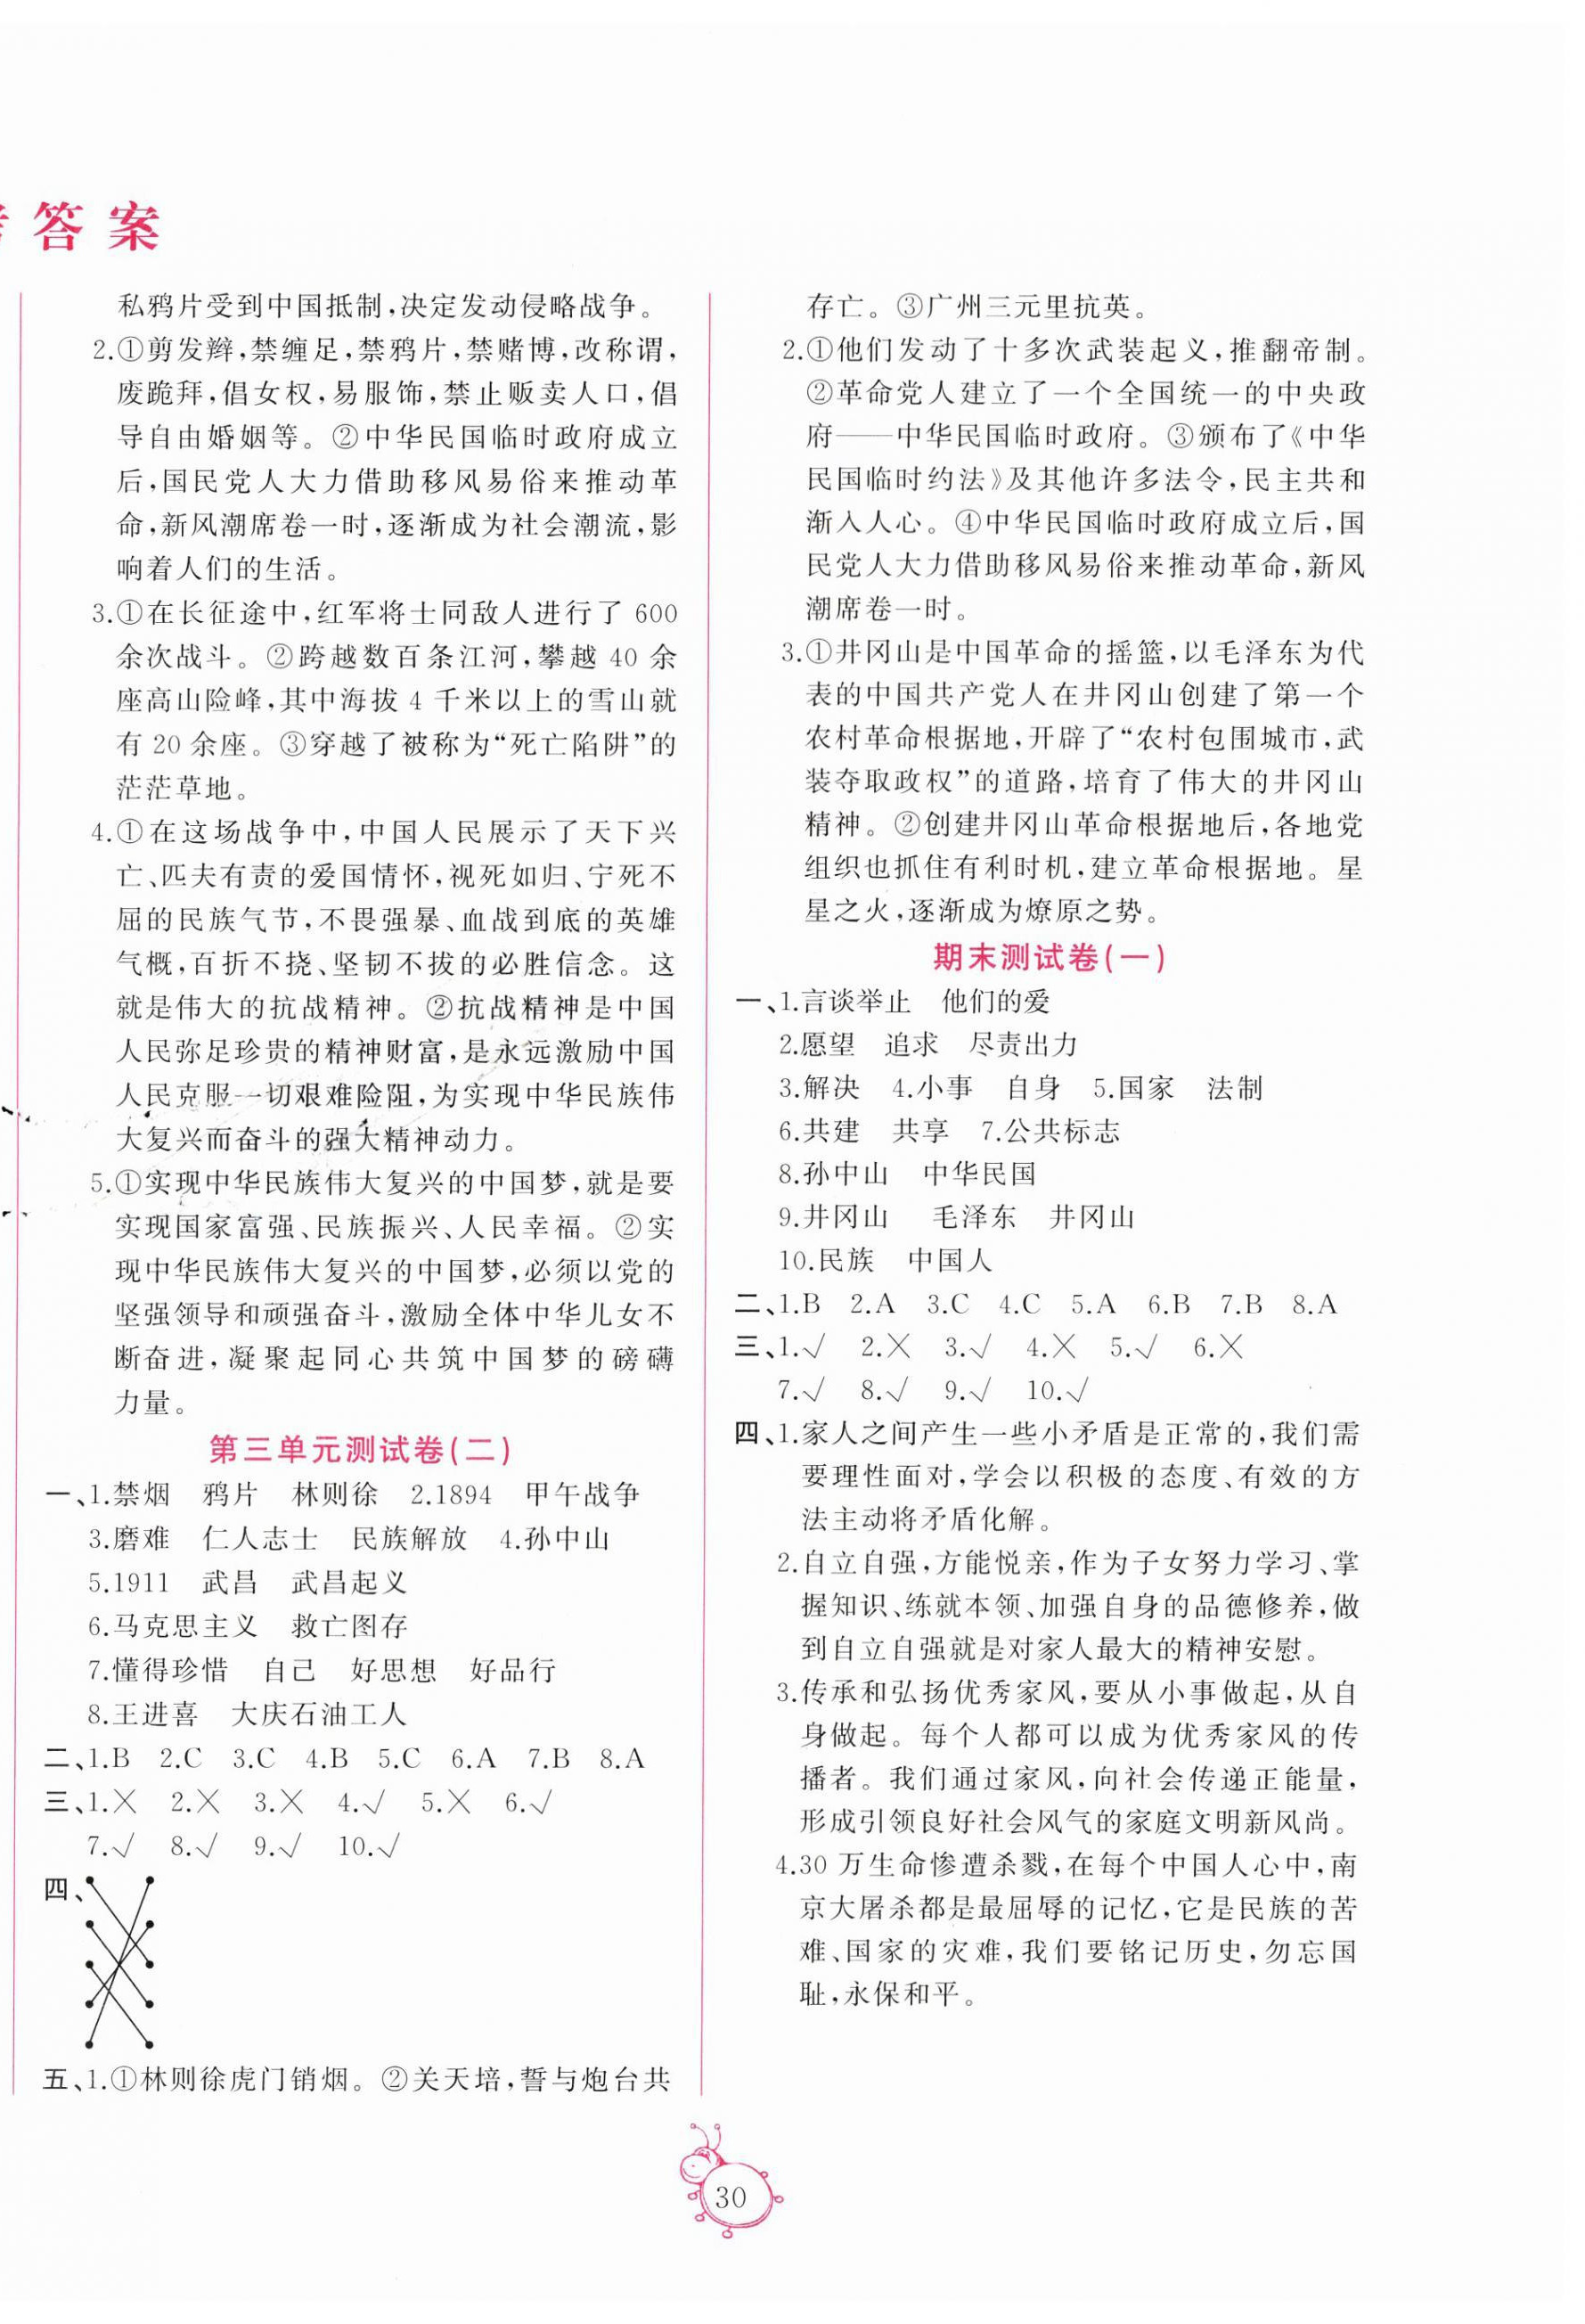 答案
私鸦片受到中国抵制,决定发动侵略战争。
2.①剪发辫,禁缠足,禁鸦片,禁赌博,改称谓,
废跪拜,倡女权,易服饰,禁止贩卖人口,倡
导自由婚姻等。②中华民国临时政府成立
后,国民党人大力借助移风易俗来推动革
命,新风潮席卷一时,逐渐成为社会潮流,影
响着人们的生活。
3.①在长征途中,红军将士同敌人进行了 600
余次战斗。②跨越数百条江河,攀越 40 余
座高山险峰,其中海拔 4 千米以上的雪山就
有 20 余座。③穿越了被称为“死亡陷阱”的
茫茫草地。
4.①在这场战争中,中国人民展示了天下兴
亡、匹夫有责的爱国情怀,视死如归、宁死不
屈的民族气节,不畏强暴、血战到底的英雄
气概,百折不挠、坚韧不拔的必胜信念。这
就是伟大的抗战精神。②抗战精神是中国
人民弥足珍贵的精神财富,是永远激励中国
人民克服一切艰难险阻,为实现中华民族伟
大复兴而奋斗的强大精神动力。
5.①实现中华民族伟大复兴的中国梦,就是要
实现国家富强、民族振兴、人民幸福。②实
现中华民族伟大复兴的中国梦,必须以党的
坚强领导和顽强奋斗,激励全体中华儿女不
断奋进,凝聚起同心共筑中国梦的磅礴
力量。
第三单元测试卷(二)
一、1.禁烟 鸦片 林则徐 2.1894 甲午战争
3.磨难 仁人志士 民族解放 4.孙中山
5.1911 武昌 武昌起义
6.马克思主义 救亡图存
7.懂得珍惜 自己 好思想 好品行
8.王进喜 大庆石油工人
二、1.B 2.C 3.C 4.B 5.C 6.A 7.B 8.A
三、1.× 2.× 3.× 4.√ 5.× 6.√
7.√ 8.√ 9.√ 10.√
四、
五、1.①林则徐虎门销烟。②关天培,誓与炮台共
存亡。③广州三元里抗英。
2.①他们发动了十多次武装起义,推翻帝制。
②革命党人建立了一个全国统一的中央政
府——中华民国临时政府。③颁布了《中华
民国临时约法》及其他许多法令,民主共和
渐入人心。④中华民国临时政府成立后,国
民党人大力借助移风易俗来推动革命,新风
潮席卷一时。
3.①井冈山是中国革命的摇篮,以毛泽东为代
表的中国共产党人在井冈山创建了第一个
农村革命根据地,开辟了“农村包围城市,武
装夺取政权”的道路,培育了伟大的井冈山
精神。②创建井冈山革命根据地后,各地党
组织也抓住有利时机,建立革命根据地。星
星之火,逐渐成为燎原之势。
期末测试卷(一)
一、1.言谈举止 他们的爱
2.愿望 追求 尽责出力
3.解决 4.小事 自身 5.国家 法制
6.共建 共享 7.公共标志
8.孙中山 中华民国
9.井冈山 毛泽东 井冈山
10.民族 中国人
二、1.B 2.A 3.C 4.C 5.A 6.B 7.B 8.A
三、1.√ 2.× 3.√ 4.× 5.√ 6.×
7.√ 8.√ 9.√ 10.√
四、1.家人之间产生一些小矛盾是正常的,我们需
要理性面对,学会以积极的态度、有效的方
法主动将矛盾化解。
2.自立自强,方能悦亲,作为子女努力学习、掌
握知识、练就本领、加强自身的品德修养,做
到自立自强就是对家人最大的精神安慰。
3.传承和弘扬优秀家风,要从小事做起,从自
身做起。每个人都可以成为优秀家风的传
播者。我们通过家风,向社会传递正能量,
形成引领良好社会风气的家庭文明新风尚。
4.30 万生命惨遭杀戮,在每个中国人心中,南
京大屠杀都是最屈辱的记忆,它是民族的苦
难、国家的灾难,我们要铭记历史,勿忘国
耻,永保和平。
30